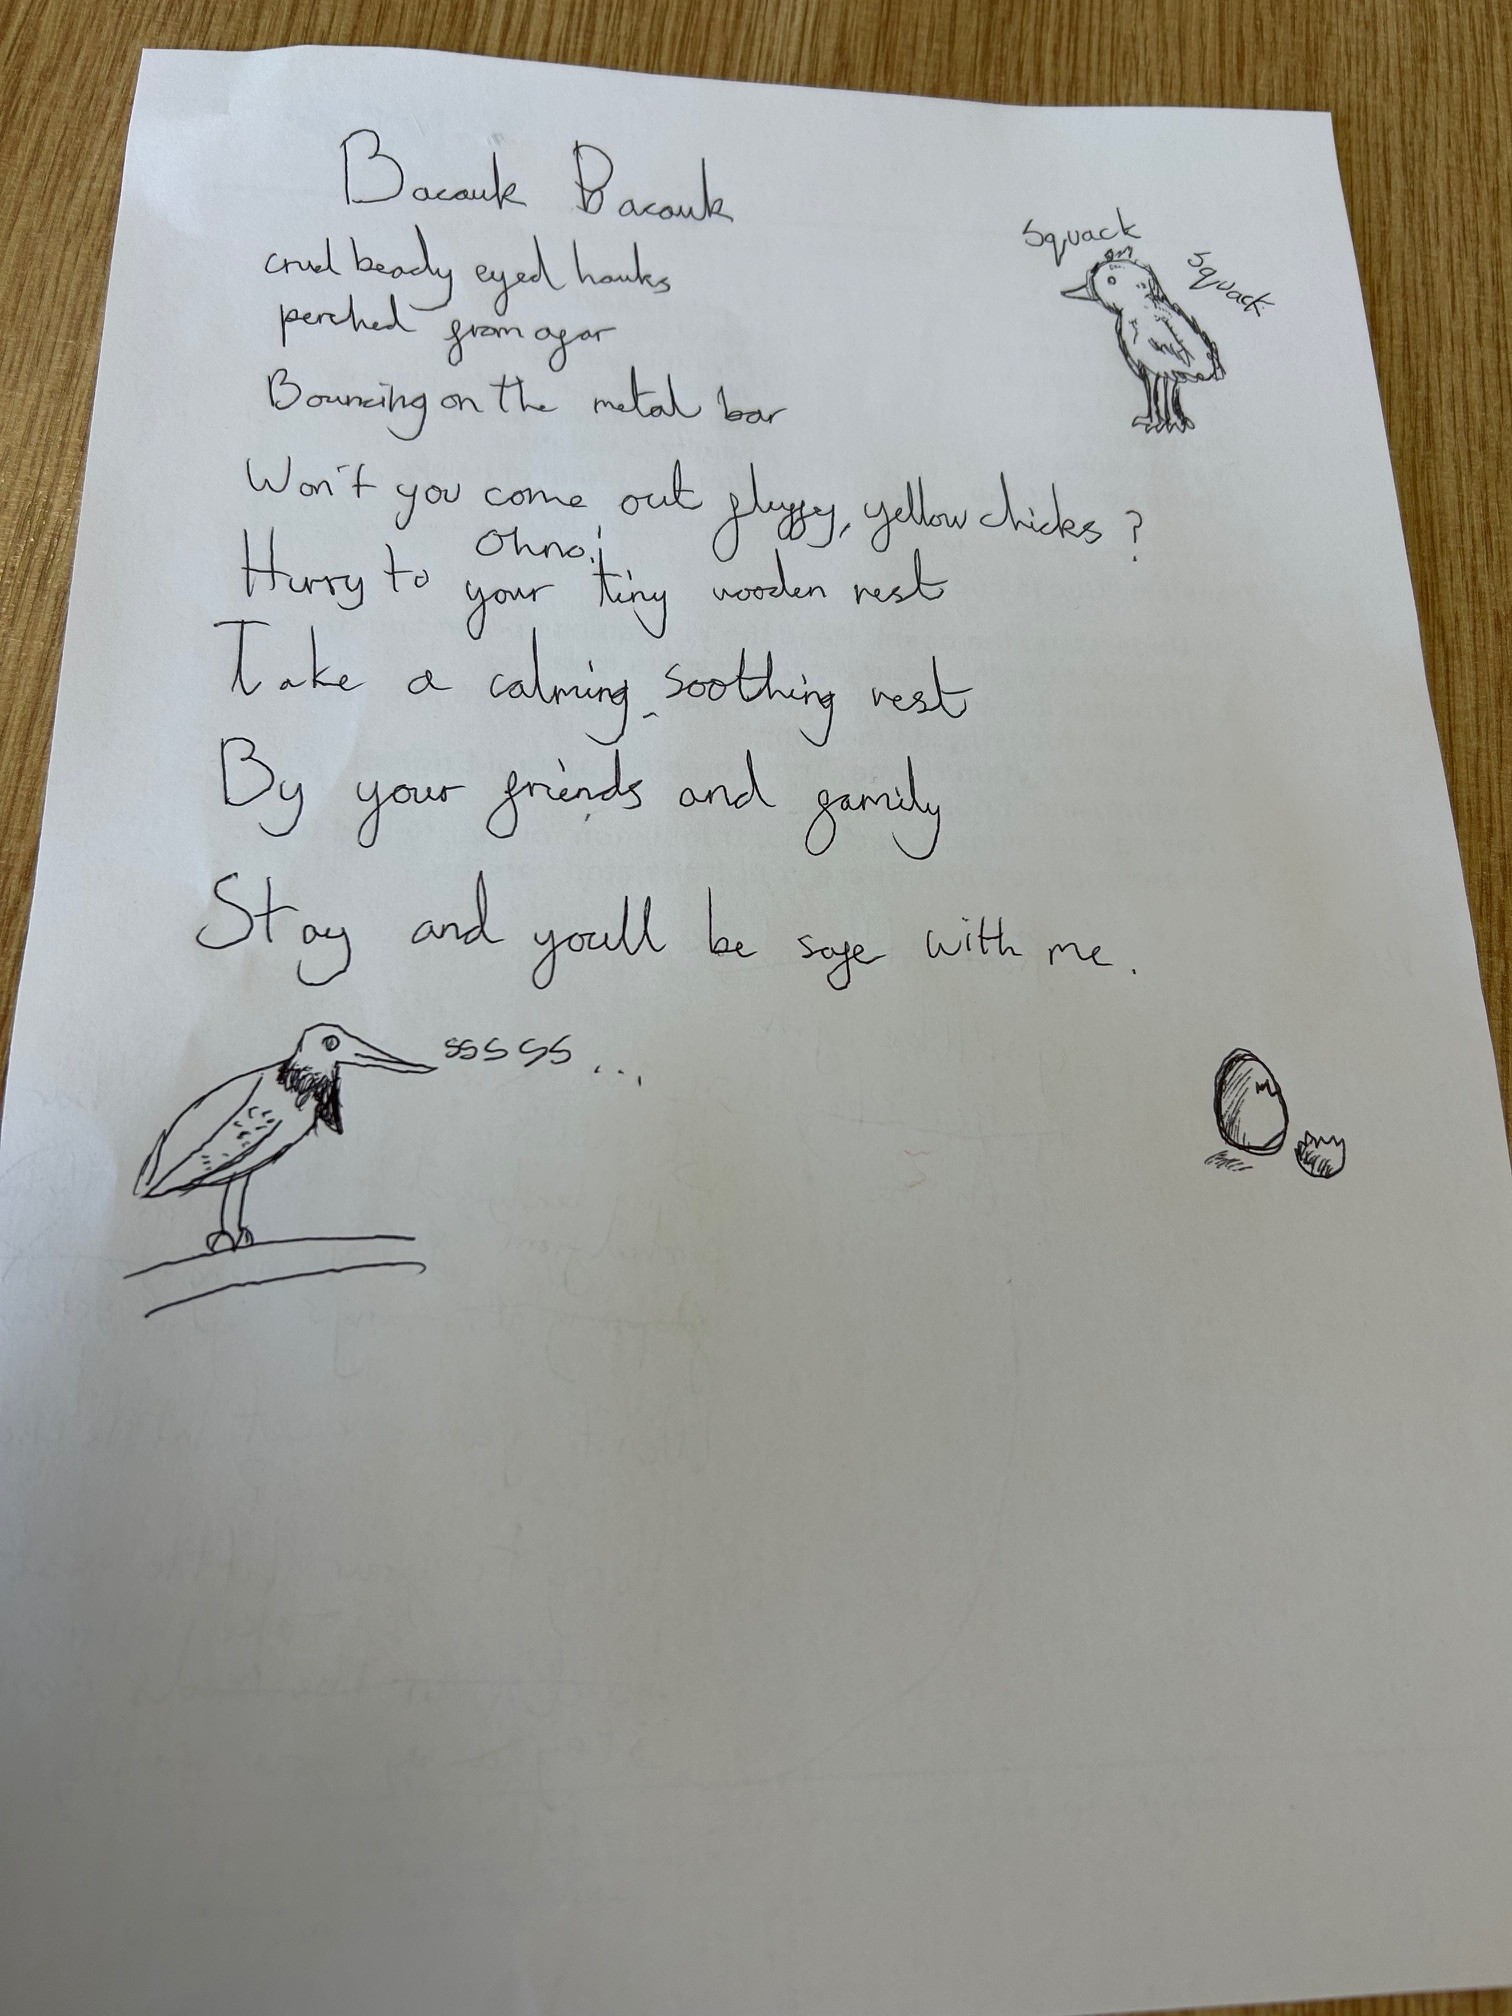 Bacauk Bacauk
Squack
Squack
cruel beady eyed hawks
perched from afar
Bouncing on the metal bar
Won't you come out fluffy, yellow chicks?
Oh no!
Hurry to your tiny wooden nest
Take a calming, soothing rest
By your friends and family
Stay and you'll be safe with me.
sssss...